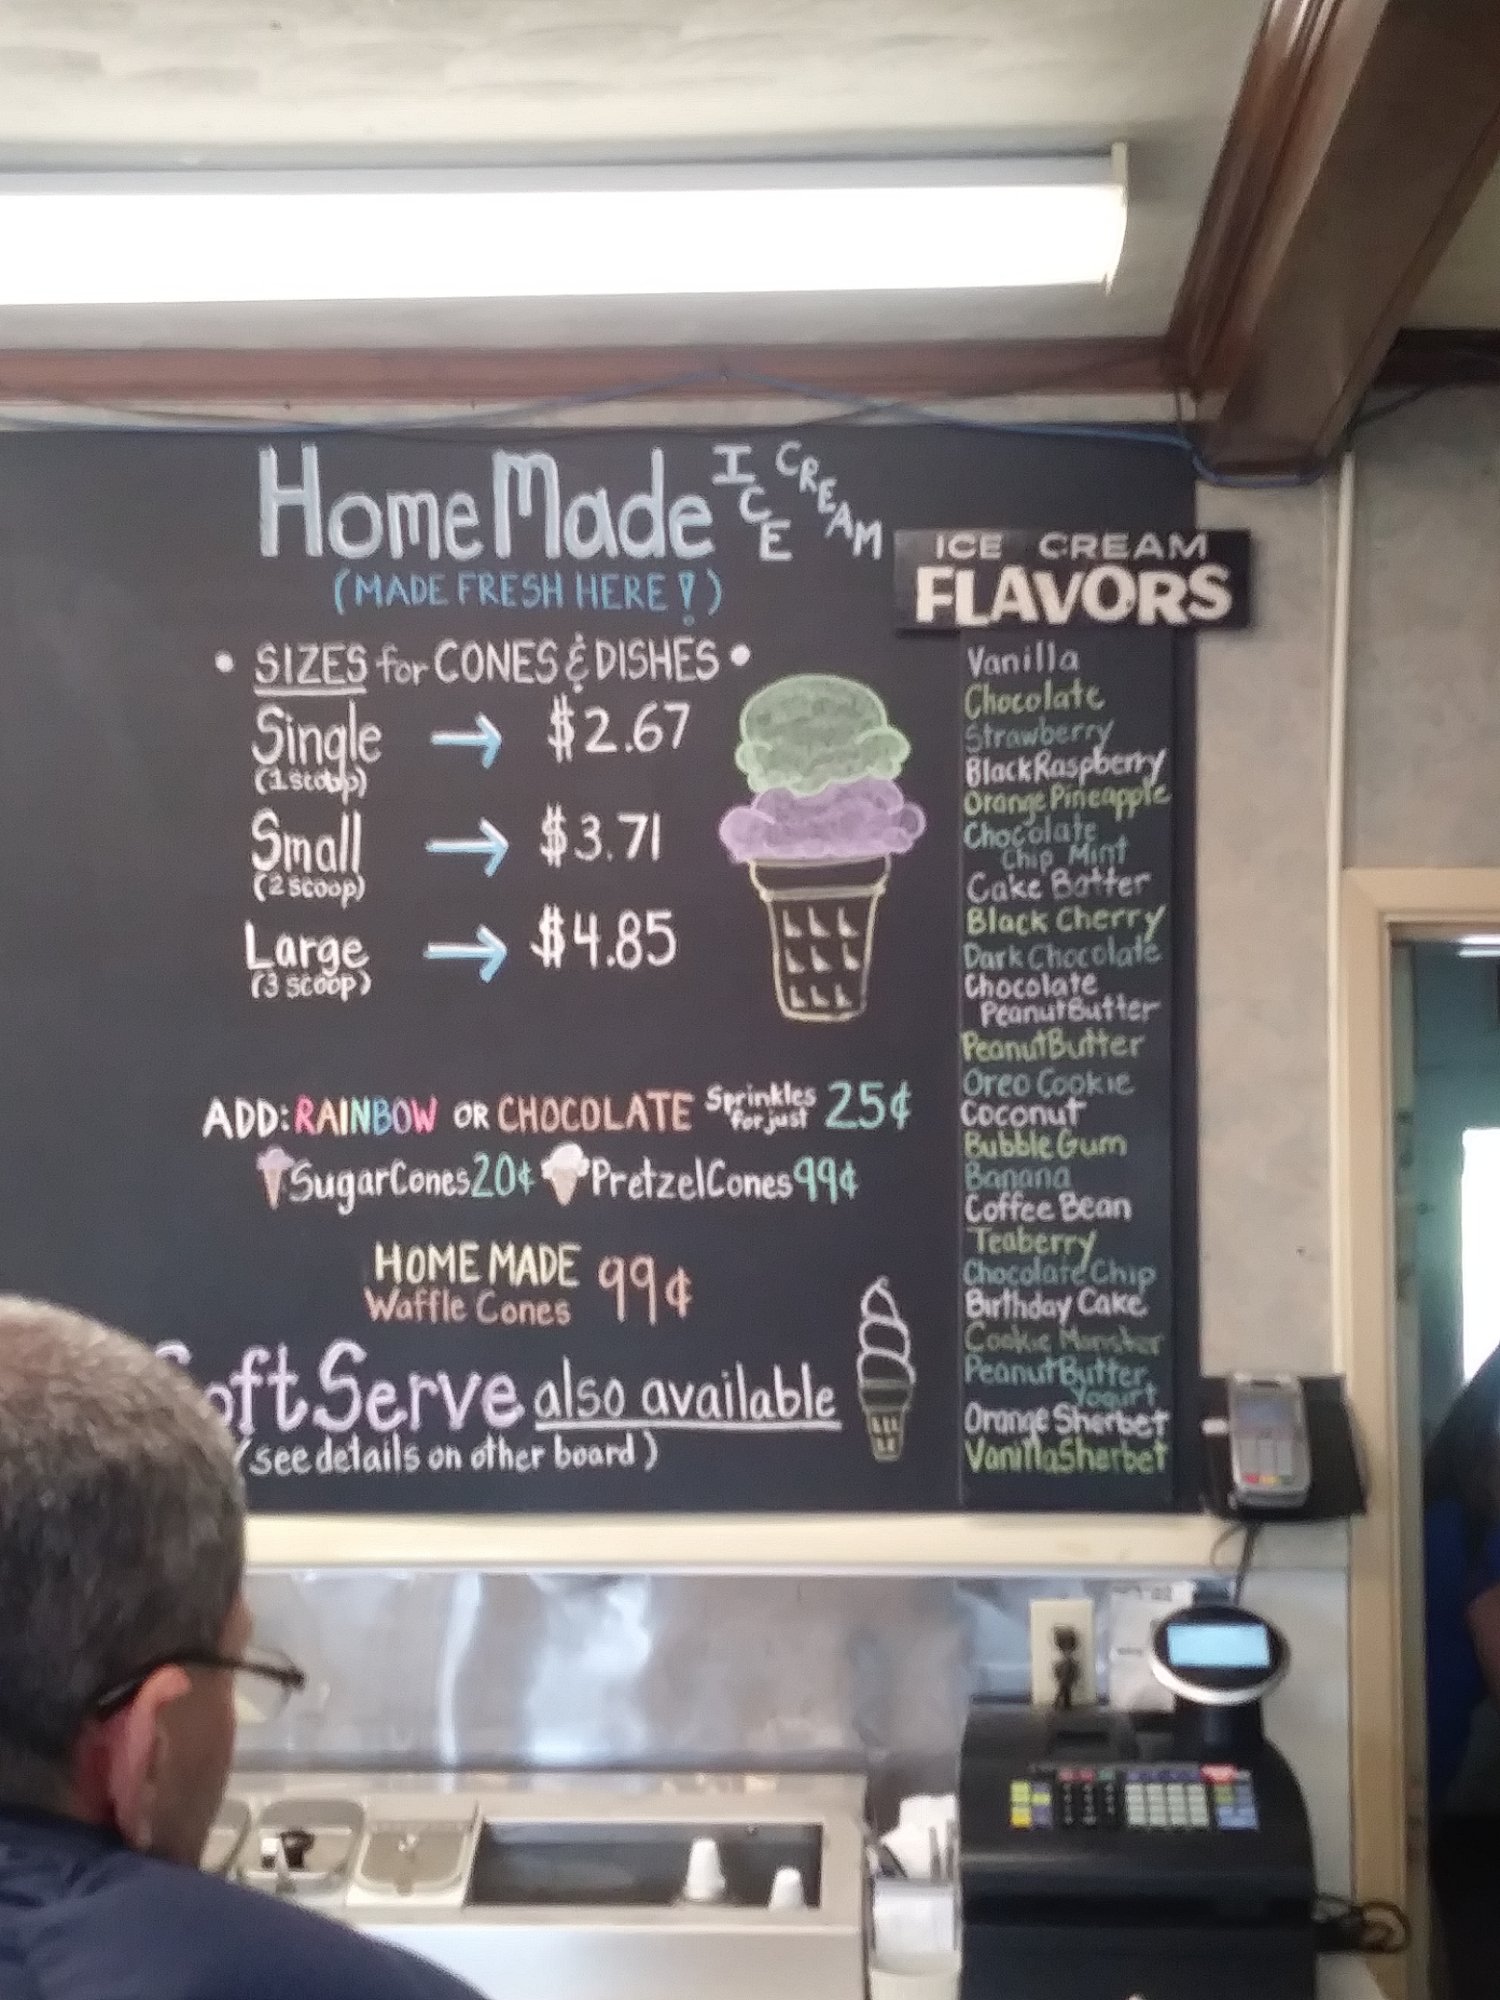 HomeMade ICE CREAM
(MADE FRESH HERE!)
• SIZES for CONES & DISHES •
Single → $2.67
(1 scoop)
Small → $3.71
(2 scoop)
Large → $4.85
(3 scoop)
ADD: RAINBOW OR CHOCOLATE Sprinkles for just 25¢
Sugar Cones 20¢ Pretzel Cones 99¢
HOME MADE
Waffle Cones 99¢
Soft Serve also available
(see details on other board)
ICE CREAM
FLAVORS
Vanilla
Chocolate
Strawberry
Black Raspberry
Orange Pineapple
Chocolate
Chip Mint
Cake Batter
Black Cherry
Dark Chocolate
Chocolate
Peanut Butter
Peanut Butter
Oreo Cookie
Coconut
Bubble Gum
Banana
Coffee Bean
Teaberry
Chocolate Chip
Birthday Cake
Cookie Monster
Peanut Butter
Yogurt
Orange Sherbet
Vanilla Sherbet